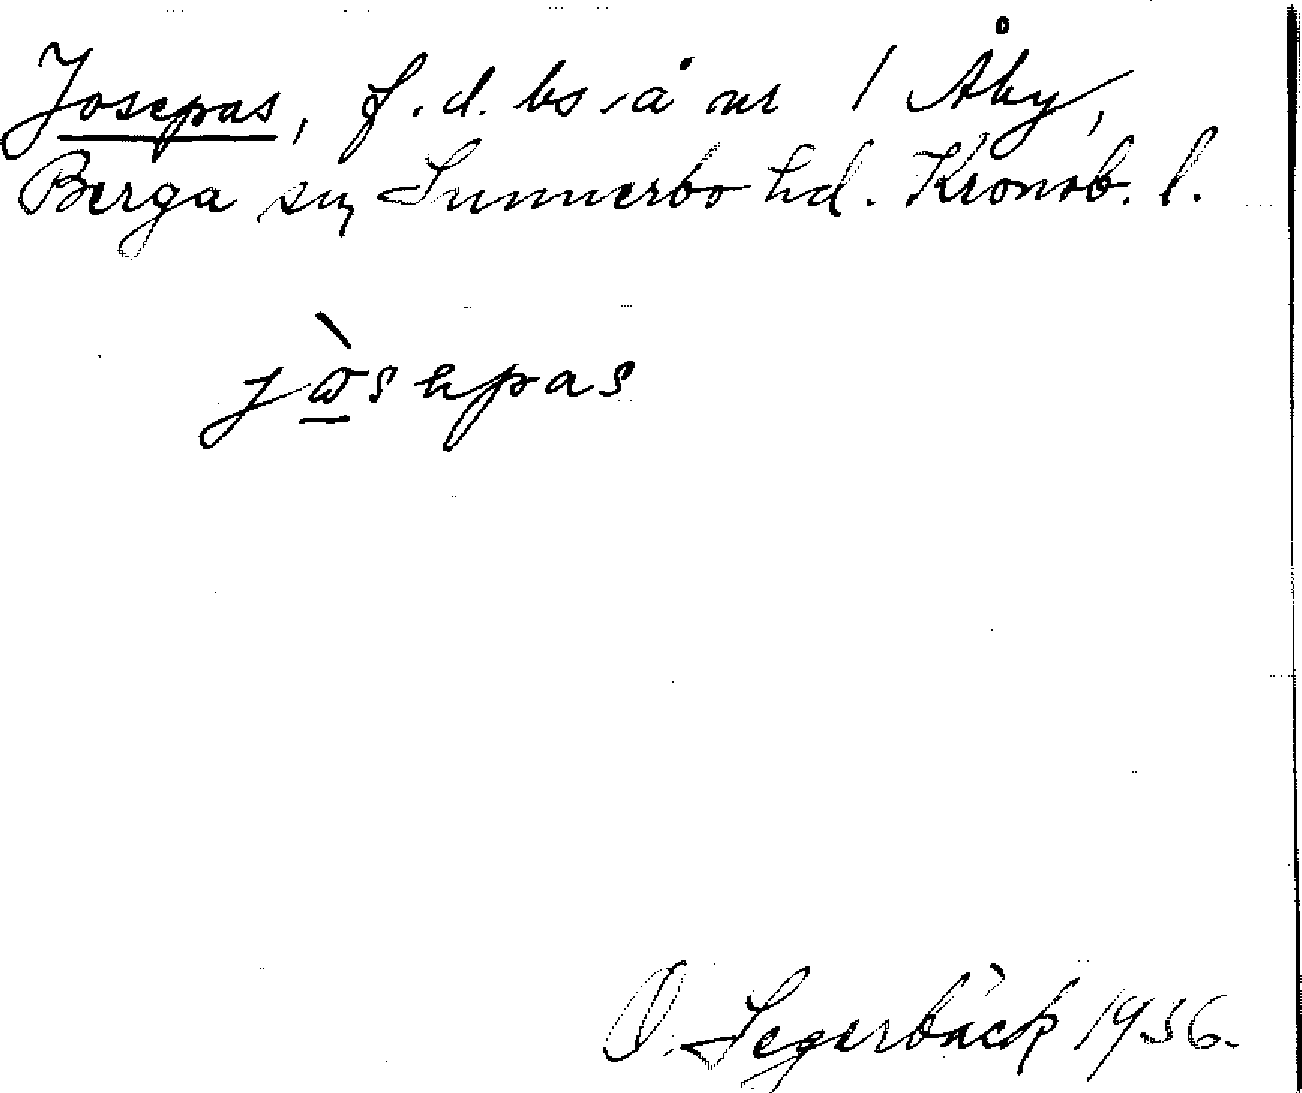 Josepas, f.d. bs å nr 1 Åby,
Berga sn, Sunnerbo hd. Kronob. l.
jòsepas
O. Segerbäck 1936.